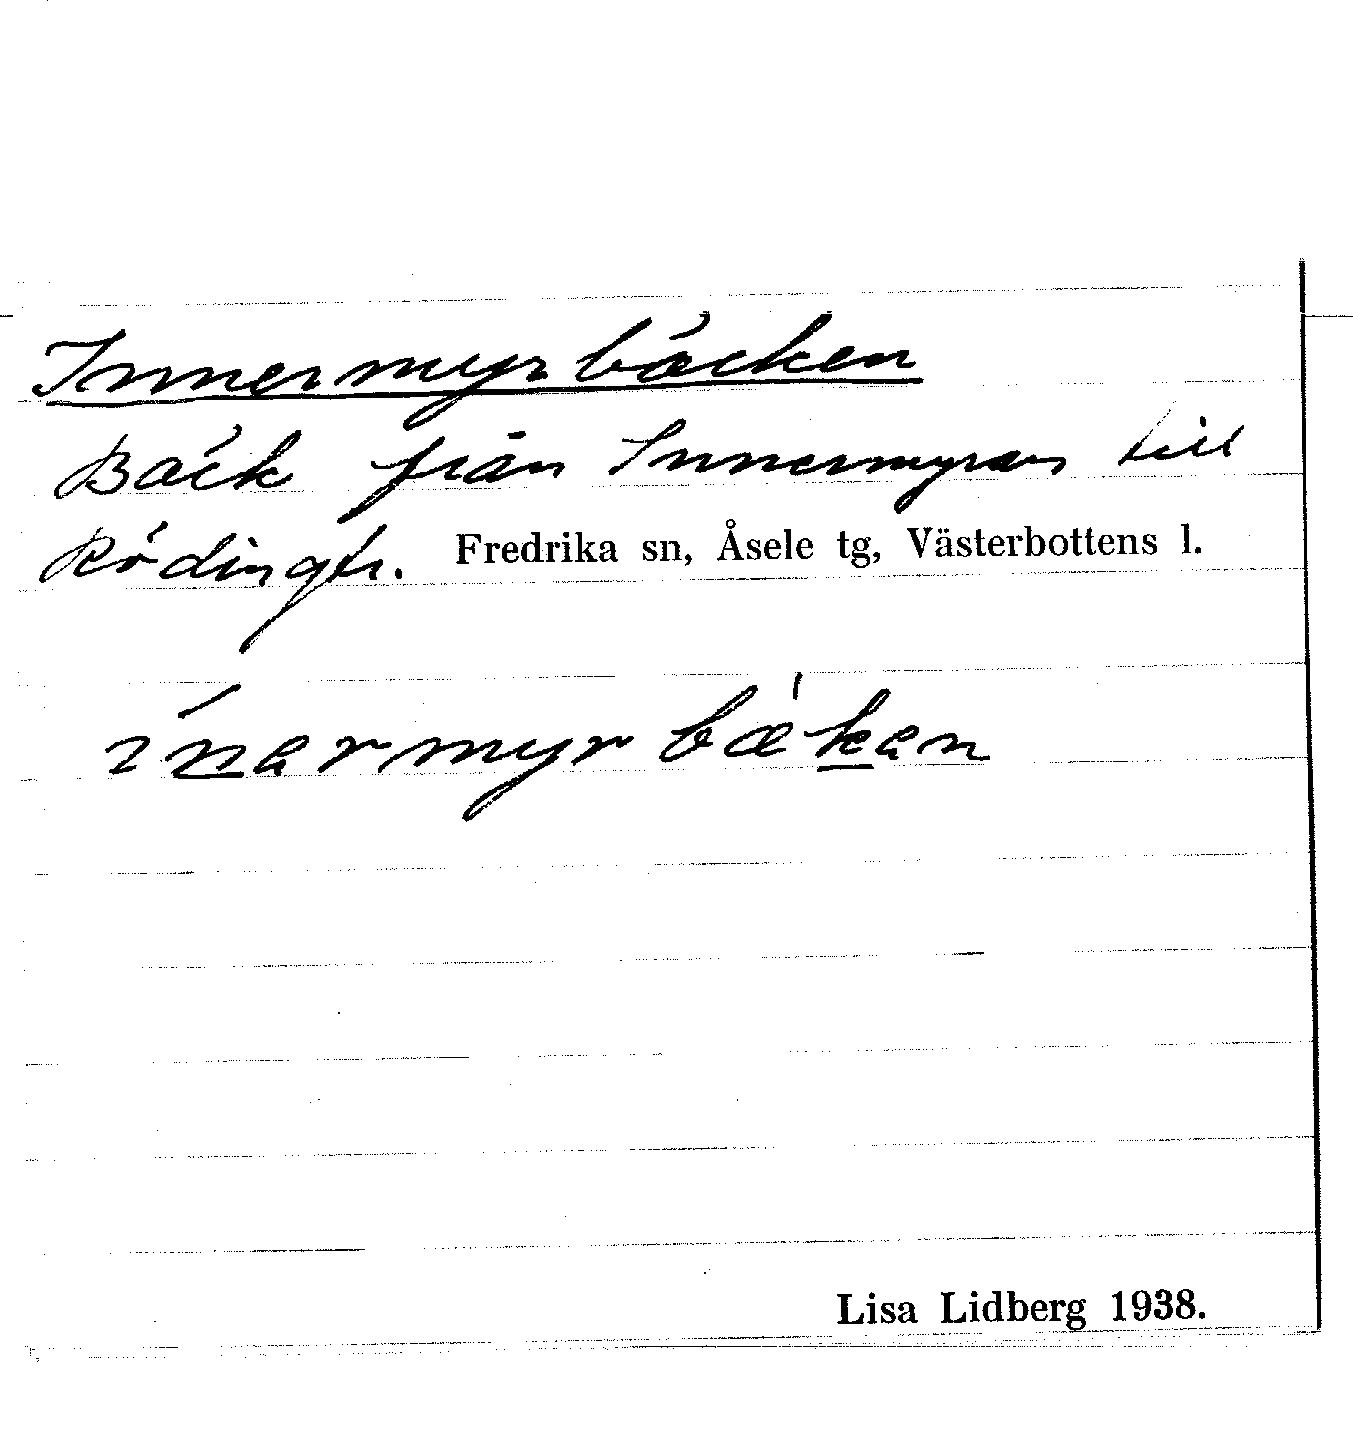 Innermyrbäcken
Bäck från Innermyran till
Rödingtr. Fredrika sn, Åsele tg, Västerbottens l.
ínarmyrbæ'kan
Lisa Lidberg 1938.